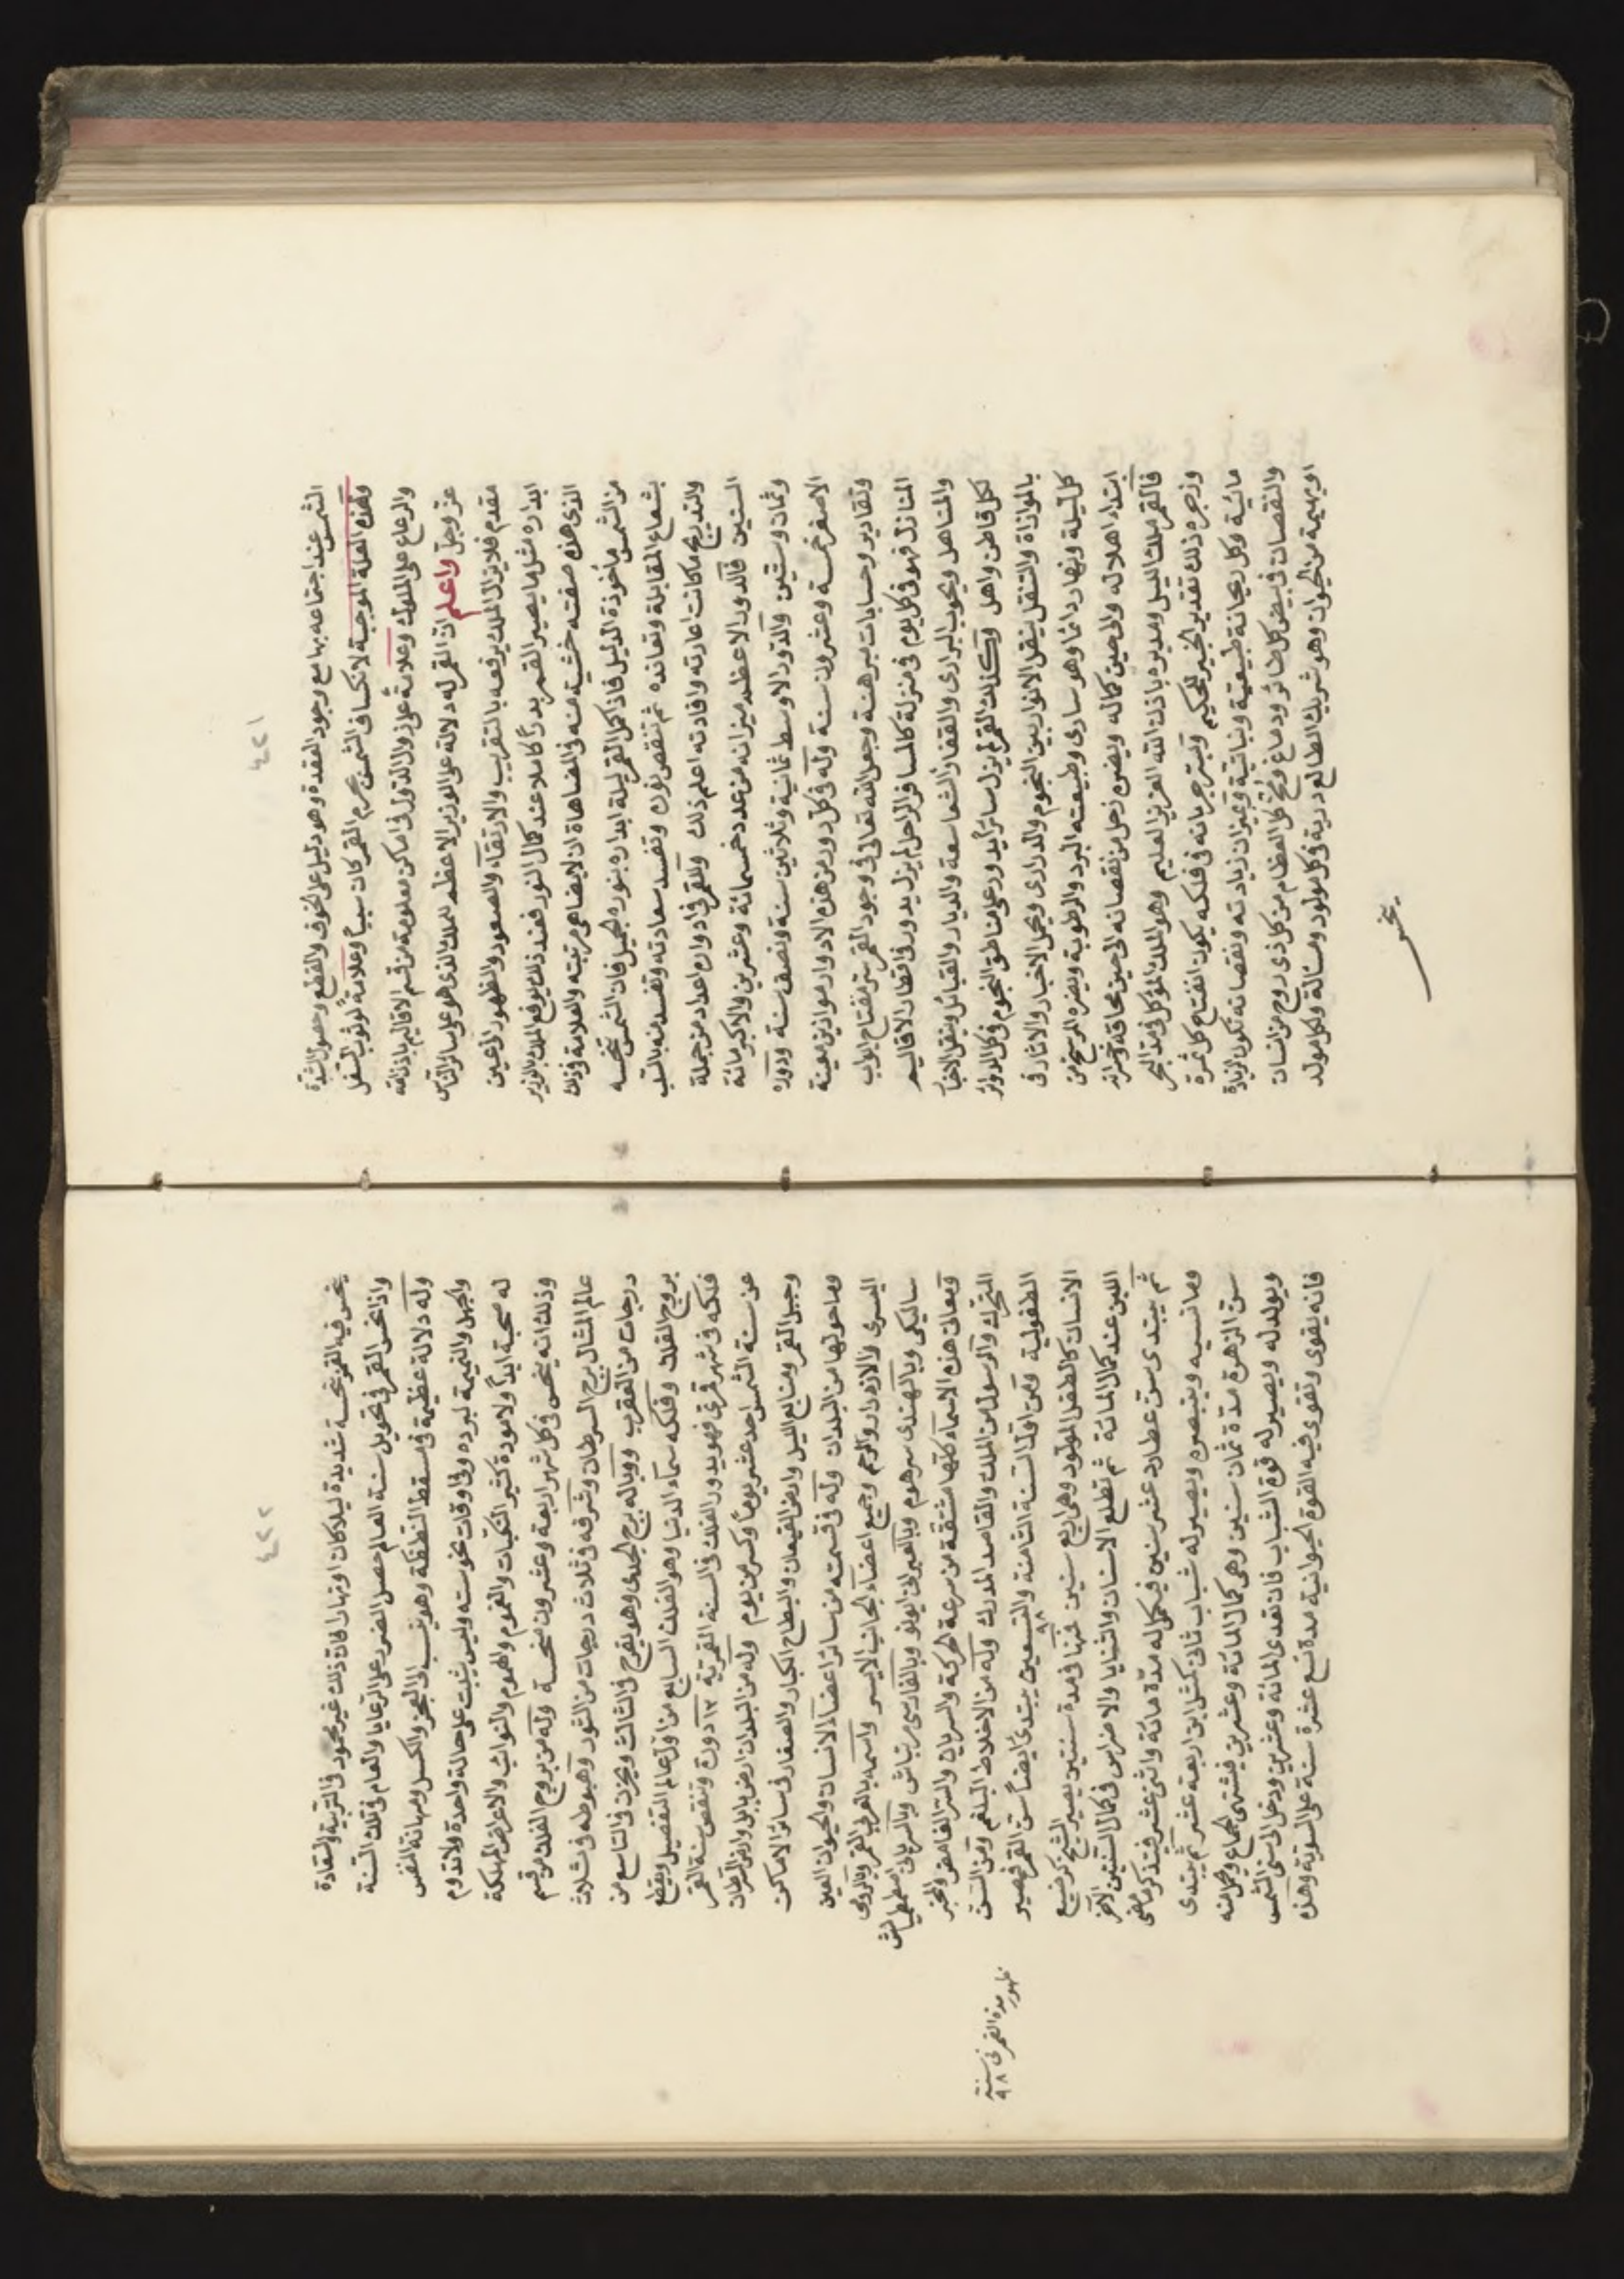 ٤٢١
الشمس عند اجتماعه بها مع وجود العقدة وهو دليل على الخوف والقطع وحصول الشدة
وهذه العلة الموجبة لانكساف الشمس بجرم القمر كان سبباً وعلامة لوثوب السفل
والرعاع على الملوك وعلامة على والذول في اماكن معلومة من قسم الاقاليم باذن الله
عز وجل واعلم ان القمر له دلالة على الوزير الاعظم للملك الذي هو على سائر الناس
مقدم فلا يزال الملك يرفعه بالتقريب والارتقاء والصعود والظهور الى حين
ابداره مثل ما يصير القمر بدراً كاملا عند كمال النور فعند ذلك يوقع الملك بالوزير
الذي هذه صفته خشية منه والمضاهاة ان لا يضاهي مرتبته والعلامة وذلك
من الشمس مأخوذة الدليل فاذا كمل القمر ليلة ابداره بنوره الجميل فان الشمس تنحسه
بشعاع المقابلة وتعانده ثم تنقص نوره وتفسد سعادته وتفسد منه بالسلب
والتدريج ما كانت اعارته وافادته اعلم ذلك وللقمر في ادواره اعداد من جملة
السنين فالدور الاعظم ميزانه من عدد خمسمائة وعشرين والاكبر مائة
وثمان وستين والدور الاوسط ثمانية وثلاثين سنة ونصف سنة ودوره
الاصغر خمسة وعشرون سنة وله في كل دور من هذه الادوار موازين معينة
وتقادير وحسابات مبرهنة وجعل الله تعالى في وجود القمر سر مفتاح ابواب
المنازل فهو في كل يوم في منزلة كالمسافر الراحل لم يزل يدور في اقطار الاقاليم
والمناهل ويجوب البراري والقفار الشعاسعة والديار والقبائل وينقل الاخبار
لكل قاطن واهل وكذلك القمر لم يزل سائراً يدور على مناطق النجوم في كل الدوائر
بالموازاة والتنقل ينقل الانوار بين النجوم والدراري ويحمل الاخبار والاثار في
كل ليلة ونهار دائما وهو ساري وطبيعته البرد والرطوبة ويضره المريخ من
ابتداء اهلاله والى حين كماله ويضره زحل من نقصانه الى حين محاقه وخسرانه
فالقمر ملك الليل ومديره باذن الله العزيز العليم وهو الملك الموكل في مد البحر
وزجره ذلك تقدير الخبير الحكيم وبسر جريانه في فلكه يكون انفتاح كل ثمرة
مائية وكل ريحانة طبيعية ونباتية وبميزان زيادته ونقصانه تكون الزيادة
والنقصان في بيض كل طائر ودماغ ومخ كل العظام من كل ذي روح من الانسان
او بهيمة من الحيوان وهو شريك الطالع درية في كل مولود ومسألة ولكل مولد
ينحس
٤٢٢
ينحس فيه القمر نحسة شديدة ليلا كان او نهارا فان ذلك غير محمود في التربية والسعادة
واذا نحس القمر في تحويل سنة العالم حصل الضرر على الرعايا والعام في تلك السنة
وله دلالة عظيمة في مسقط النطفة وهو ينسب الى العجز والكسل ومهانة النفس
والجهل والنميمة لبرده وفي اوقات نحوسته وليس يثبت على حالة واحدة ولا تدوم
له صحبة ابداً ولا مودة كثير النكبات والغموم والهموم والنوائب والاعراض المهلكة
وذلك انه ينحس في كل شهر اربعة وعشرون منحسة وله من بروج الفلك من قسم
عالم المثال برج السرطان وشرفه في ثلاث درجات من الثور وهبوطه في ثلاث
درجات من العقرب ووباله برج الجدي وهو يفرح في الثالث ويحزن في التاسع من
بروج الفلك وفلكه سماء الدنيا وهو الفلك السابع من اول عالم التفصيل ويقطع
فلكه في شهر قمري فهو يدور الفلك في السنة القمرية ١٢ دورة وتنقص سنة القمر
عن سنة الشمس احد عشر يوماً وكسر من يوم وله من البلدان ارض بابل وارض السرطان
وجبل القمر ومنابع النيل وارض القيعان والبطاح الكبار والصغار في سائر الاماكن
وما حولها من البلدان وله في قسمته من سائر اعضاء الانسان والحيوان العين
اليسرى والازدرار والرحم وجميع اعضاء الجانب الايسر واسمه بالعربي القمر وبالرومي
ساليكي وبالهندي سرهوم وبالعبراني اونو وبالفارسي مرتباش وبالسرياني
ومعاني هذه الاسماء كلها مشتقة من سرعة الحركة والسريان والستر الغامض والمخبر
المتحرك والرسول من الملك والقاصد المدرك وله من الاخلاط البلغم ومن السن
الطفولية ومن اول السنة الثامنة والتسعين يبتدئ ايضاً سن القمر فيصير
٩٨
الانسان كالطفل المولود وهي اربع سنين فمنها في مدة سنتين يصير الشيخ كرضيع
اللبن عند كمال المائة ثم تطلع الاسنان والثنايا والاضراس في كمال السنتين الاخر
ثم يبتدئ سن عطارد عشر سنين فيكمل له مدة مائة واثنى عشر فيتذكر ما مضى
وما نسيه وينبصره ويصير له شباب ثاني كمثل ابن اربعة عشر ثم يبتدئ
سن الزهرة مدة ثمان سنين وهي كمال المائة وعشرين فيشتهي الجماع ويحمل منه
ويولد له ويصير له قوة الشباب فان تعدى المائة وعشرين ودخل الى سن الشمس
فانه يقوى وتقوى فيه القوة الحيوانية مدة تسع عشرة سنة على السوية وهذه
ظهور مدة القمر في سنة
٩٨